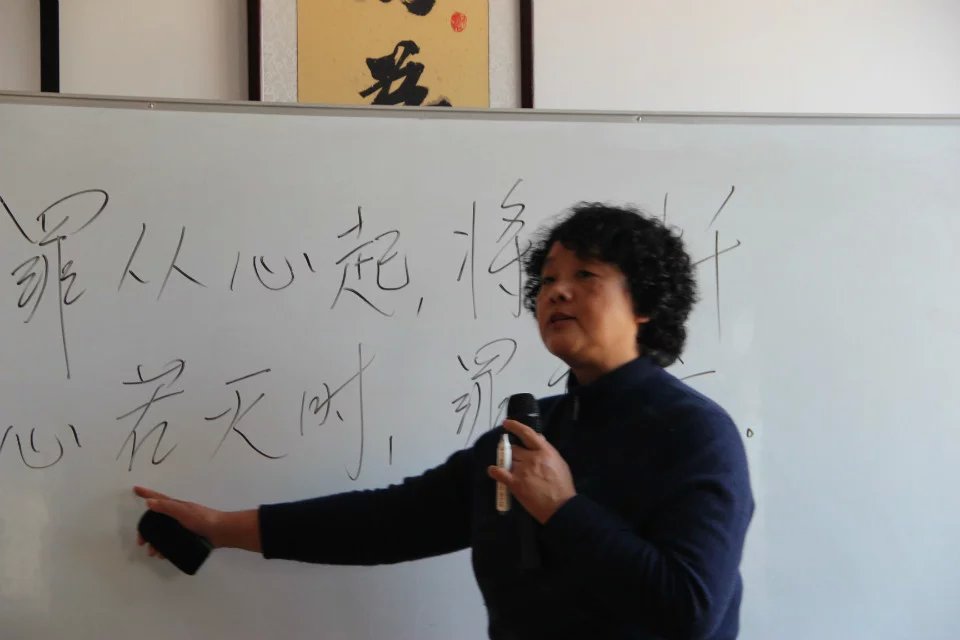 罪从心起，将忏
心若灭时，罪。